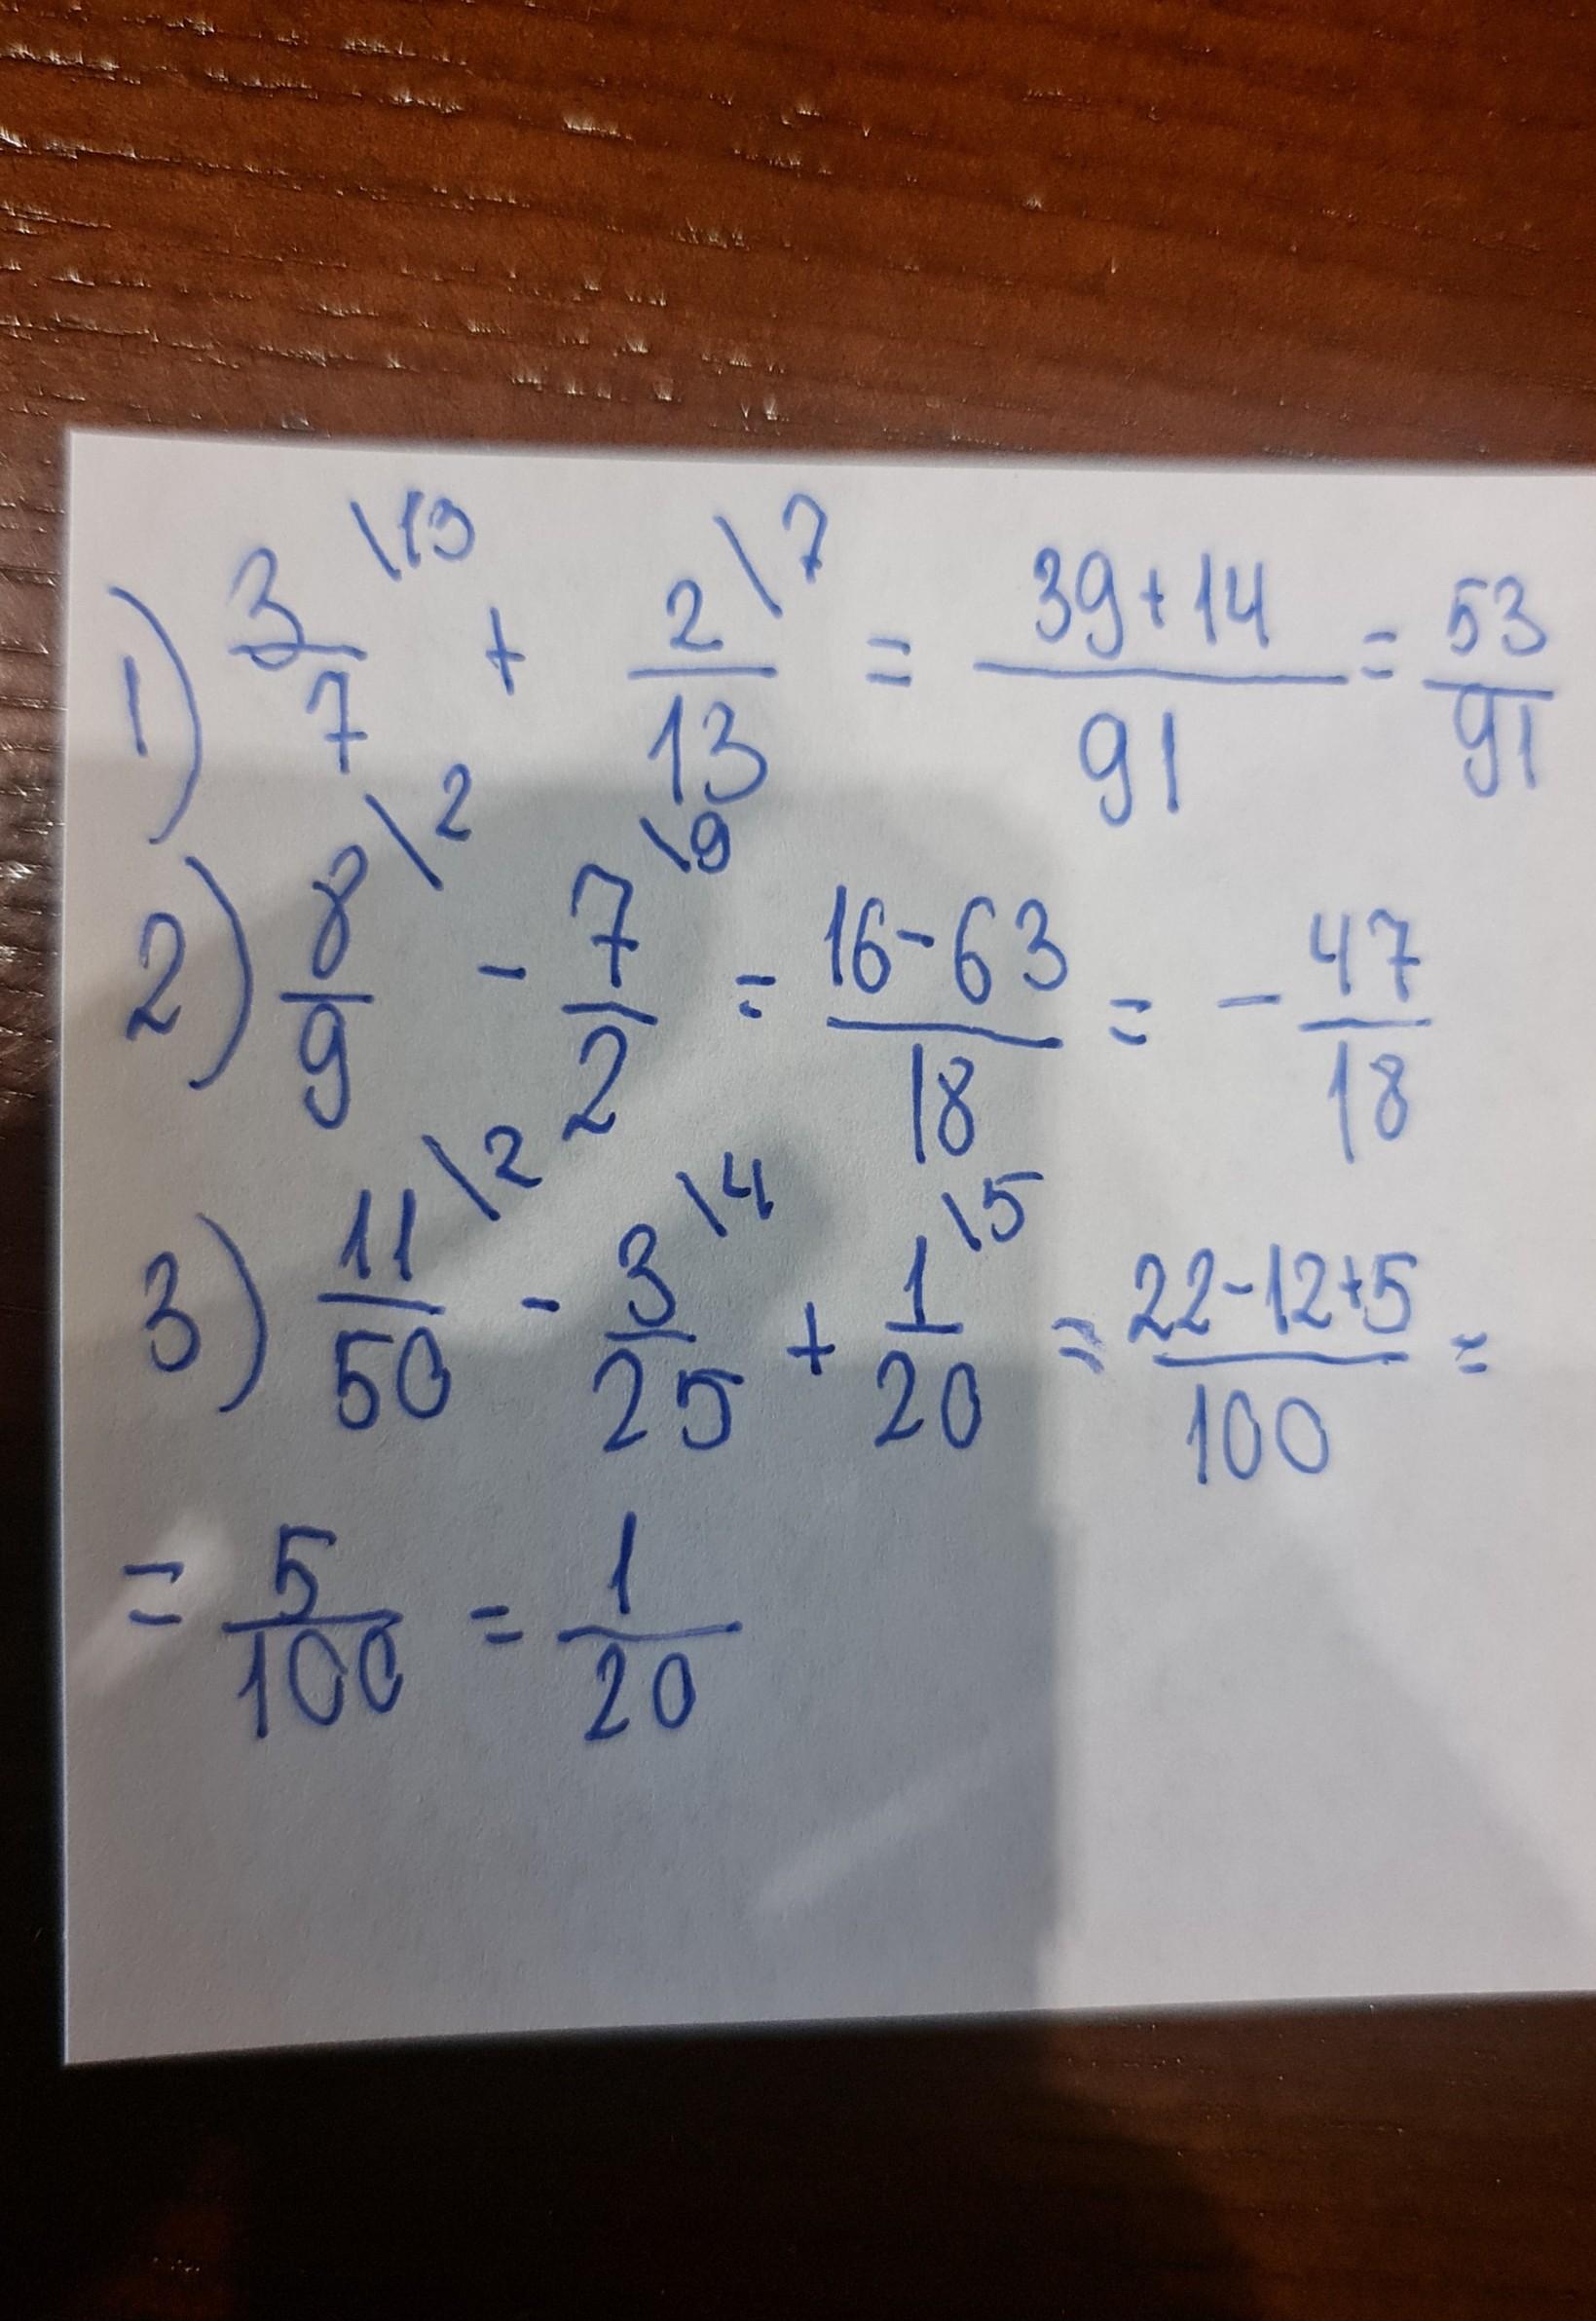 1) 3/7 \13 + 2/13 \7 = (39+14)/91 = 53/91
2) 8/9 \2 - 7/2 \9 = (16-63)/18 = - 47/18
3) 11/50 \2 - 3/25 \4 + 1/20 \5 = (22-12+5)/100 =
= 5/100 = 1/20